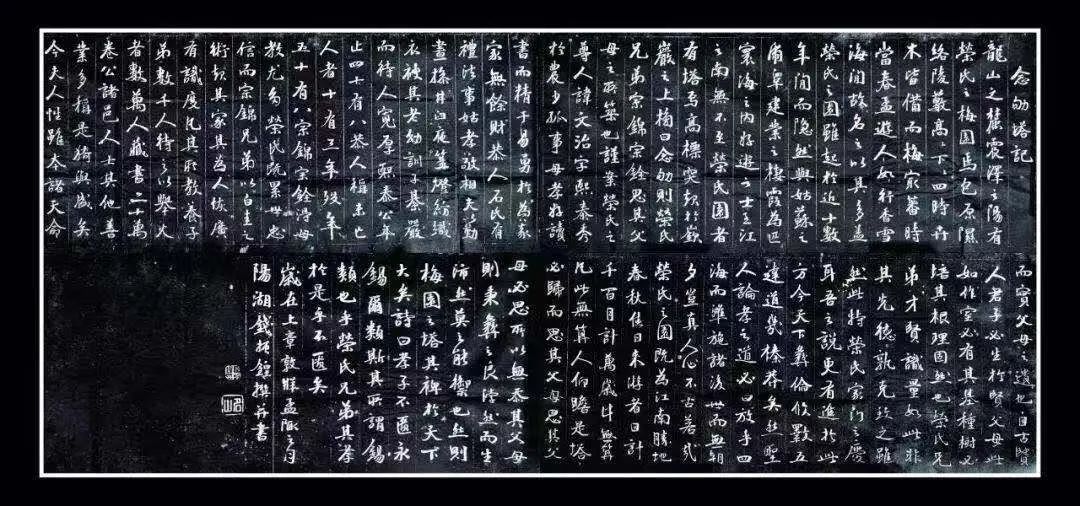 念劬塔記
龍山之麓震澤之陽有
榮氏之梅園焉包原隰
絡陵藪高高下下四時卉
木皆備而梅冣蕃時
當春孟遊人如行香雪
海間故名之以其多盖
榮氏之園雖起於近十數
年間而隱然與姑蘇之
虎阜建業之棲霞為匹
寰海之內好遊之士至江
之南無不至榮氏園者
有塔焉高標突於嶔
巖之上楣曰念劬則榮氏
兄弟宗錦宗銓思其父
母之所築也謹案榮氏之
尊人諱文治字熙泰秀
於農少孤事母孝好讀
書而精于易勇於為義
家無餘財恭人石氏有
禮法事姑孝敬相夫以勤
晝操井臼夜篝燈紡織
衣被其老幼訓子綦嚴
而待人寬厚熙泰公年
止四十有八恭人稱未亡
人者十有三年歿年
五十有八宗錦宗銓得母
教尤多榮氏既累世忠
信而宗錦兄弟以白圭之
術起其家其為人恢廣
有識度凡其所教養子
弟數千人待之以舉火
者數萬人藏書二十萬
卷公諸邑人士其他善
業多稱是猗與盛矣
今夫人性雖本諸天命
而實父母之遺也自古賢
人君子必生於賢父母此
如作室必有其基種樹必
培其根理固然也榮氏兄
弟才賢識量如此非
其先德孰克致之雖
然此特榮氏家門之慶
耳吾之說更有進於此
方今天下彝倫攸斁五
達道幾榛莽矣然聖
人論孝之道必曰放乎四
海而準施諸後世而無朝
夕豈真人心不古若哉
榮氏之園既為江南勝地
春秋佳日來游者日計
千百月計萬歲計無算
凡此無算人仰瞻是塔
必歸而思其父母思其父
母必思所以無忝其父母
則秉彝之良泠然而生
沛然莫之能禦也然則
梅園之塔其裨於天下
大矣詩曰孝子不匱永
錫爾類斯其所謂錫
類也乎榮氏兄弟其孝
於是乎不匱矣
歲在上章敦牂孟陬之月
陽湖錢振鍠撰并書